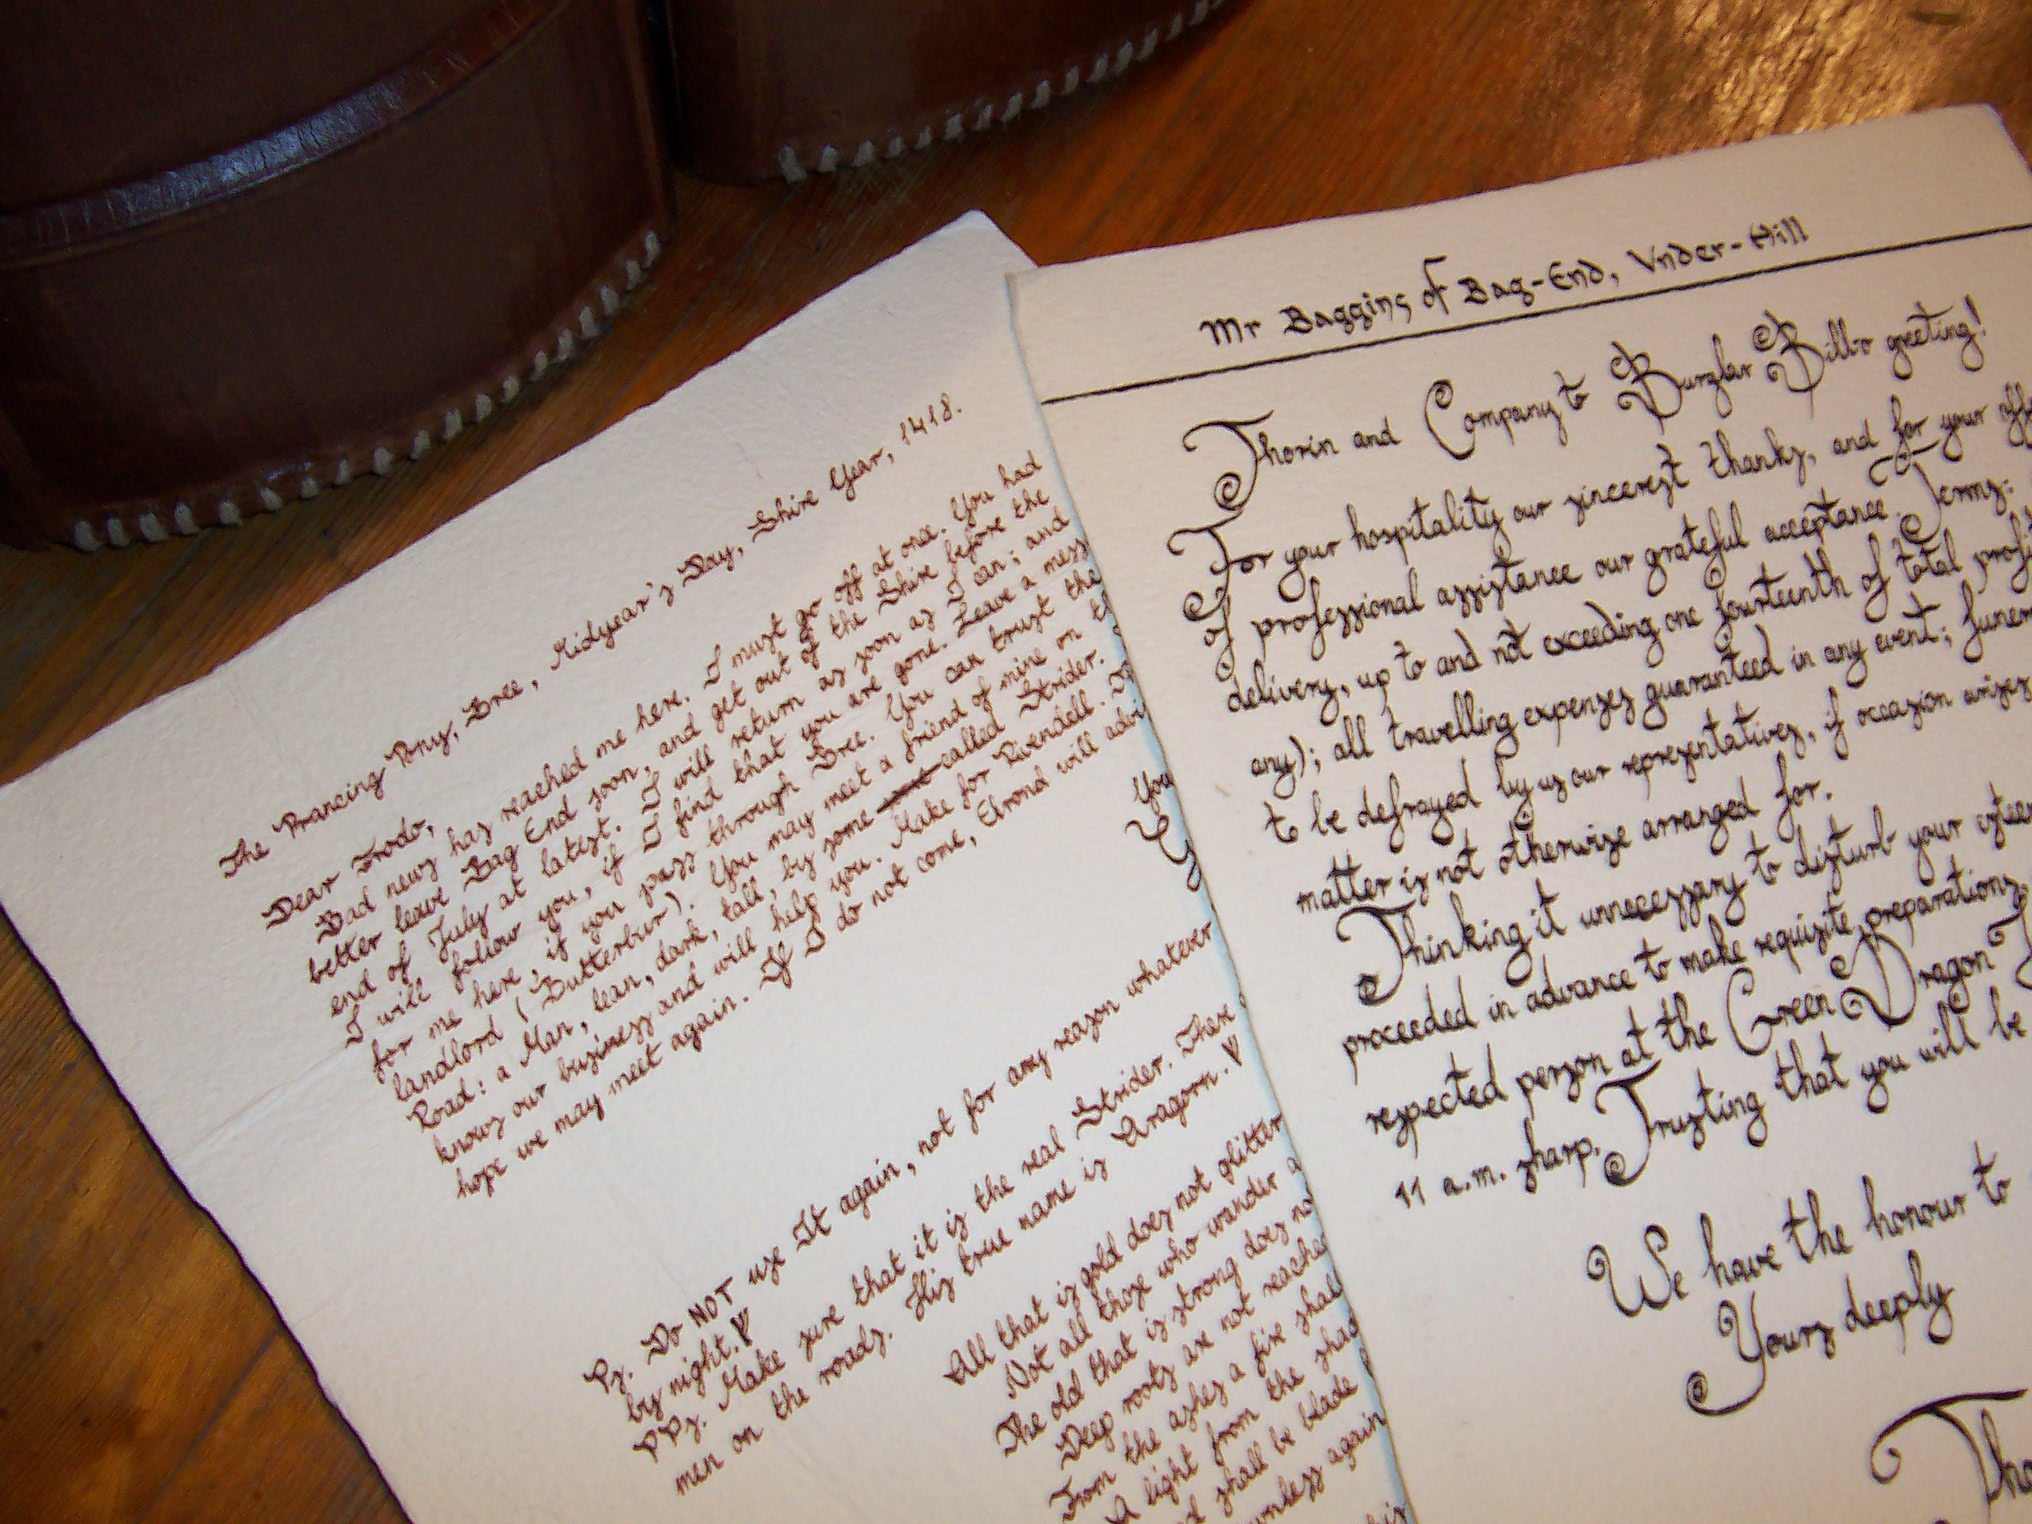 The Prancing Pony, Bree, Midyear's Day, Shire Year, 1418.
Dear Frodo,
Bad news has reached me here. I must go off at once. You had
better leave Bag End soon, and get out of the Shire before the
end of July at latest. I will return as soon as I can; and
I will follow you, if I find that you are gone. Leave a mess
for me here, if you pass through Bree. You can trust the
landlord (Butterbur). You may meet a friend of mine on
Road: a Man, lean, dark, tall, by some called Strider.
knows our business and will help you. Make for Rivendell.
hope we may meet again. If I do not come, Elrond will advi
You
Ps. Do NOT use It again, not for any reason whatever
by night.
PPs. Make sure that it is the real Strider. There
men on the roads. His true name is Aragorn.
All that is gold does not glitter
Not all those who wander a
The old that is strong does no
Deep roots are not reache
From the ashes a fire shal
A light from the shad
shall be blade
again
Mr Baggins of Bag-End, Vnder-Hill
Thorin and Company to Burglar Bilbo greeting!
For your hospitality our sincerest thanks, and for your offe
of professional assistance our grateful acceptance. Terms:
delivery, up to and not exceeding one fourteenth of total profi
any); all travelling expenses guaranteed in any event; funer
to be defrayed by us our representatives, if occasion arises
matter is not otherwise arranged for.
Thinking it unnecessary to disturb your esteem
proceeded in advance to make requisite preparations,
respected person at the Green Dragon
11 a.m. sharp. Trusting that you will be
We have the honour to
Yours deeply
Tho